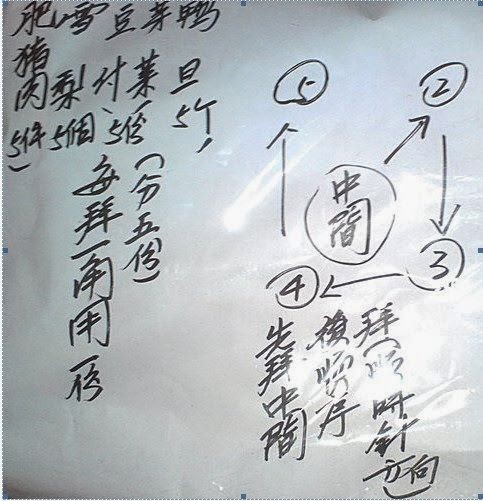 肥猪肉5件
雪梨5個
豆付5份
芽菜(分五份)
鸭旦5个,
每拜一角用一份
⑤
②
中間
③
④
先拜中間
後顺序
拜(顺时針方向)